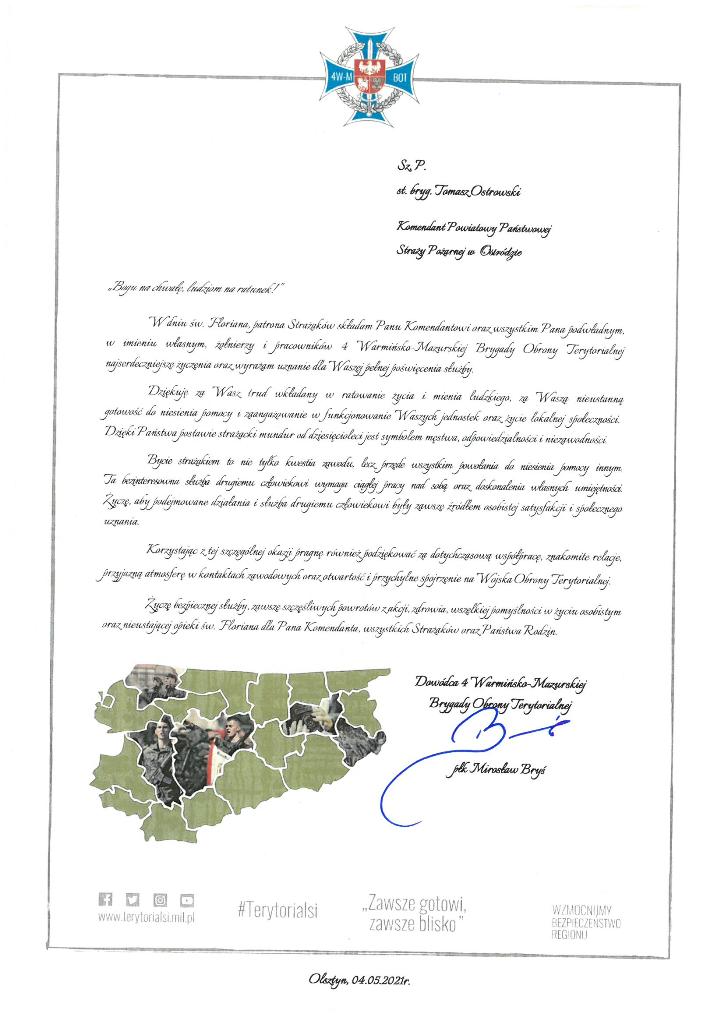 4W-M BOT
Sz. P.
st. bryg. Tomasz Ostrowski
Komendant Powiatowy Państwowej
Straży Pożarnej w Ostródzie
„Bogu na chwałę, ludziom na ratunek!”
W dniu św. Floriana, patrona Strażaków składam Panu Komendantowi oraz wszystkim Pana podwładnym,
w imieniu własnym, żołnierzy i pracowników 4 Warmińsko-Mazurskiej Brygady Obrony Terytorialnej
najserdeczniejsze życzenia oraz wyrażam uznanie dla Waszej pełnej poświęcenia służby.
Dziękuję za Wasz trud wkładany w ratowanie życia i mienia ludzkiego, za Waszą nieustanną
gotowość do niesienia pomocy i zaangażowanie w funkcjonowanie Waszych jednostek oraz życie lokalnej społeczności.
Dzięki Państwa postawie strażacki mundur od dziesięcioleci jest symbolem męstwa, odpowiedzialności i niezawodności.
Bycie strażakiem to nie tylko kwestia zawodu, lecz przede wszystkim powołania do niesienia pomocy innym.
Ta bezinteresowna służba drugiemu człowiekowi wymaga ciągłej pracy nad sobą oraz doskonalenia własnych umiejętności.
Życzę, aby podejmowane działania i służba drugiemu człowiekowi były zawsze źródłem osobistej satysfakcji i społecznego
uznania.
Korzystając z tej szczególnej okazji pragnę również podziękować za dotychczasową współpracę, znakomite relacje,
przyjazną atmosferę w kontaktach zawodowych oraz otwartość i przychylne spojrzenie na Wojska Obrony Terytorialnej.
Życzę bezpiecznej służby, zawsze szczęśliwych powrotów z akcji, zdrowia, wszelkiej pomyślności w życiu osobistym
oraz nieustającej opieki św. Floriana dla Pana Komendanta, wszystkich Strażaków oraz Państwa Rodzin.
Dowódca 4 Warmińsko-Mazurskiej
Brygady Obrony Terytorialnej
płk Mirosław Bryś
www.terytorialsi.mil.pl
#Terytorialsi
„Zawsze gotowi,
zawsze blisko”
WZMOCNIJMY
BEZPIECZEŃSTWO
REGIONU
Olsztyn, 04.05.2021r.